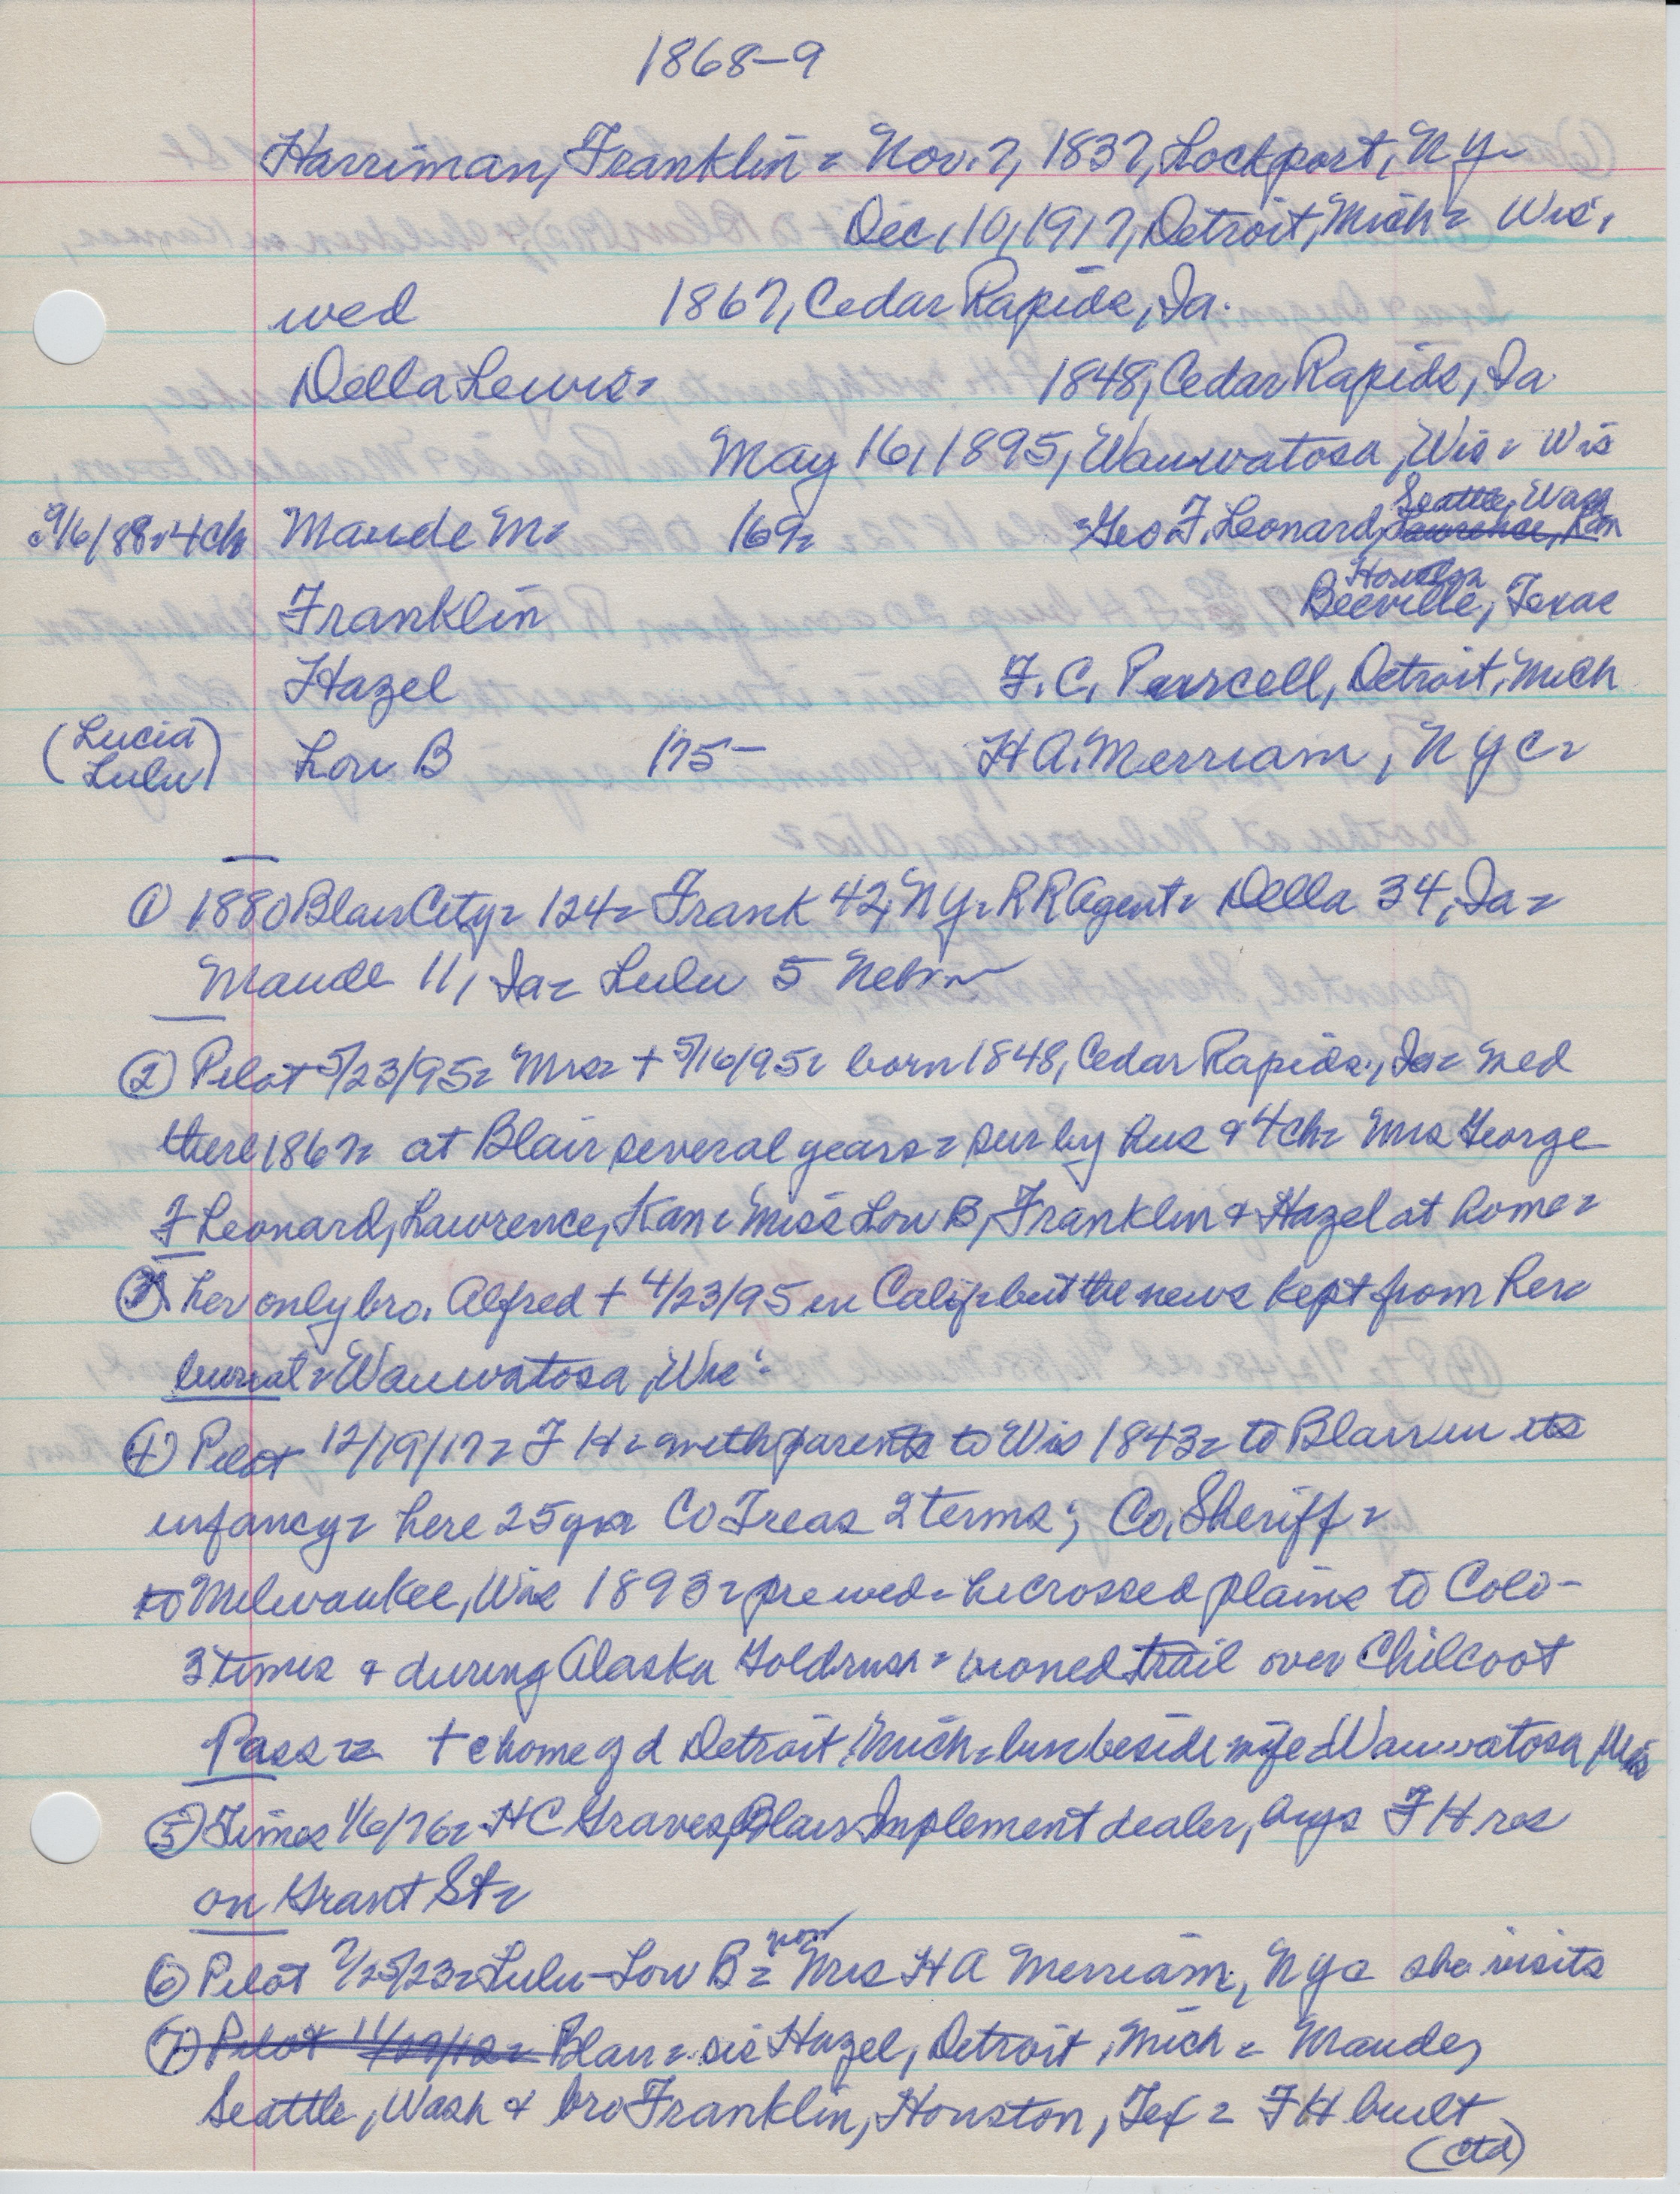 1868-9
Harriman, Franklin = Nov. 7, 1837, Lockport, NY =
Dec, 10, 1917, Detroit, Mich = Wis.
wed 1867, Cedar Rapids, Ia.
Della Lewis = 1848, Cedar Rapids, Ia.
May 16, 1895, Wauwatosa, Wis = Wis
Seattle, Wash
9/6/88 = 4 ch Maude M = '69 = = Geo F. Leonard, Lawrence, Kan
Houston
Franklin Beeville, Texas
Hazel F. C. Purscell, Detroit, Mich
(Lucia Lulu) Lou B '75 - H A. Merriam, N Y C =
① 1880 Blair City = 124 = Frank 42, NY = RR Agent = Della 34, Ia =
Maude 11, Ia = Lulu 5 Nebr
② Pilot 5/23/95 = Mrs = + 5/16/95 = born 1848, Cedar Rapids, Ia = wed
there 1867 = at Blair several years = sur by hus & 4 ch = Mrs George
F Leonard, Lawrence, Kan = Miss Lou B, Franklin & Hazel at home =
③ her only bro. Alfred + 4/23/95 in Calif = but the news kept from her
burial = Wauwatosa, Wis =
④ Pilot 12/19/17 = F H = with parents to Wis 1843 = to Blair in its
infancy = here 25 yrs Co Treas 2 terms; Co, Sheriff =
to Milwaukee, Wis 1893 = pre wed = he crossed plains to Colo -
3 times & during Alaska Goldrush = trail over Chilcoot
Pass = + @ home of d Detroit, Mich = bur beside wife = Wauwatosa, Wis
⑤ Times 1/6/76 = H C Graves, Blair Implement dealer, buys F H res
on Grant St =
now
⑥ Pilot 7/25/23 = Lulu - Lou B = Mrs H A Merriam, N Y C she visits
⑦ Pilot 11/29/12 = Blair = sis Hazel, Detroit, Mich = Maude,
Seattle, Wash & bro Franklin, Houston, Tex = F H built
(ctd)